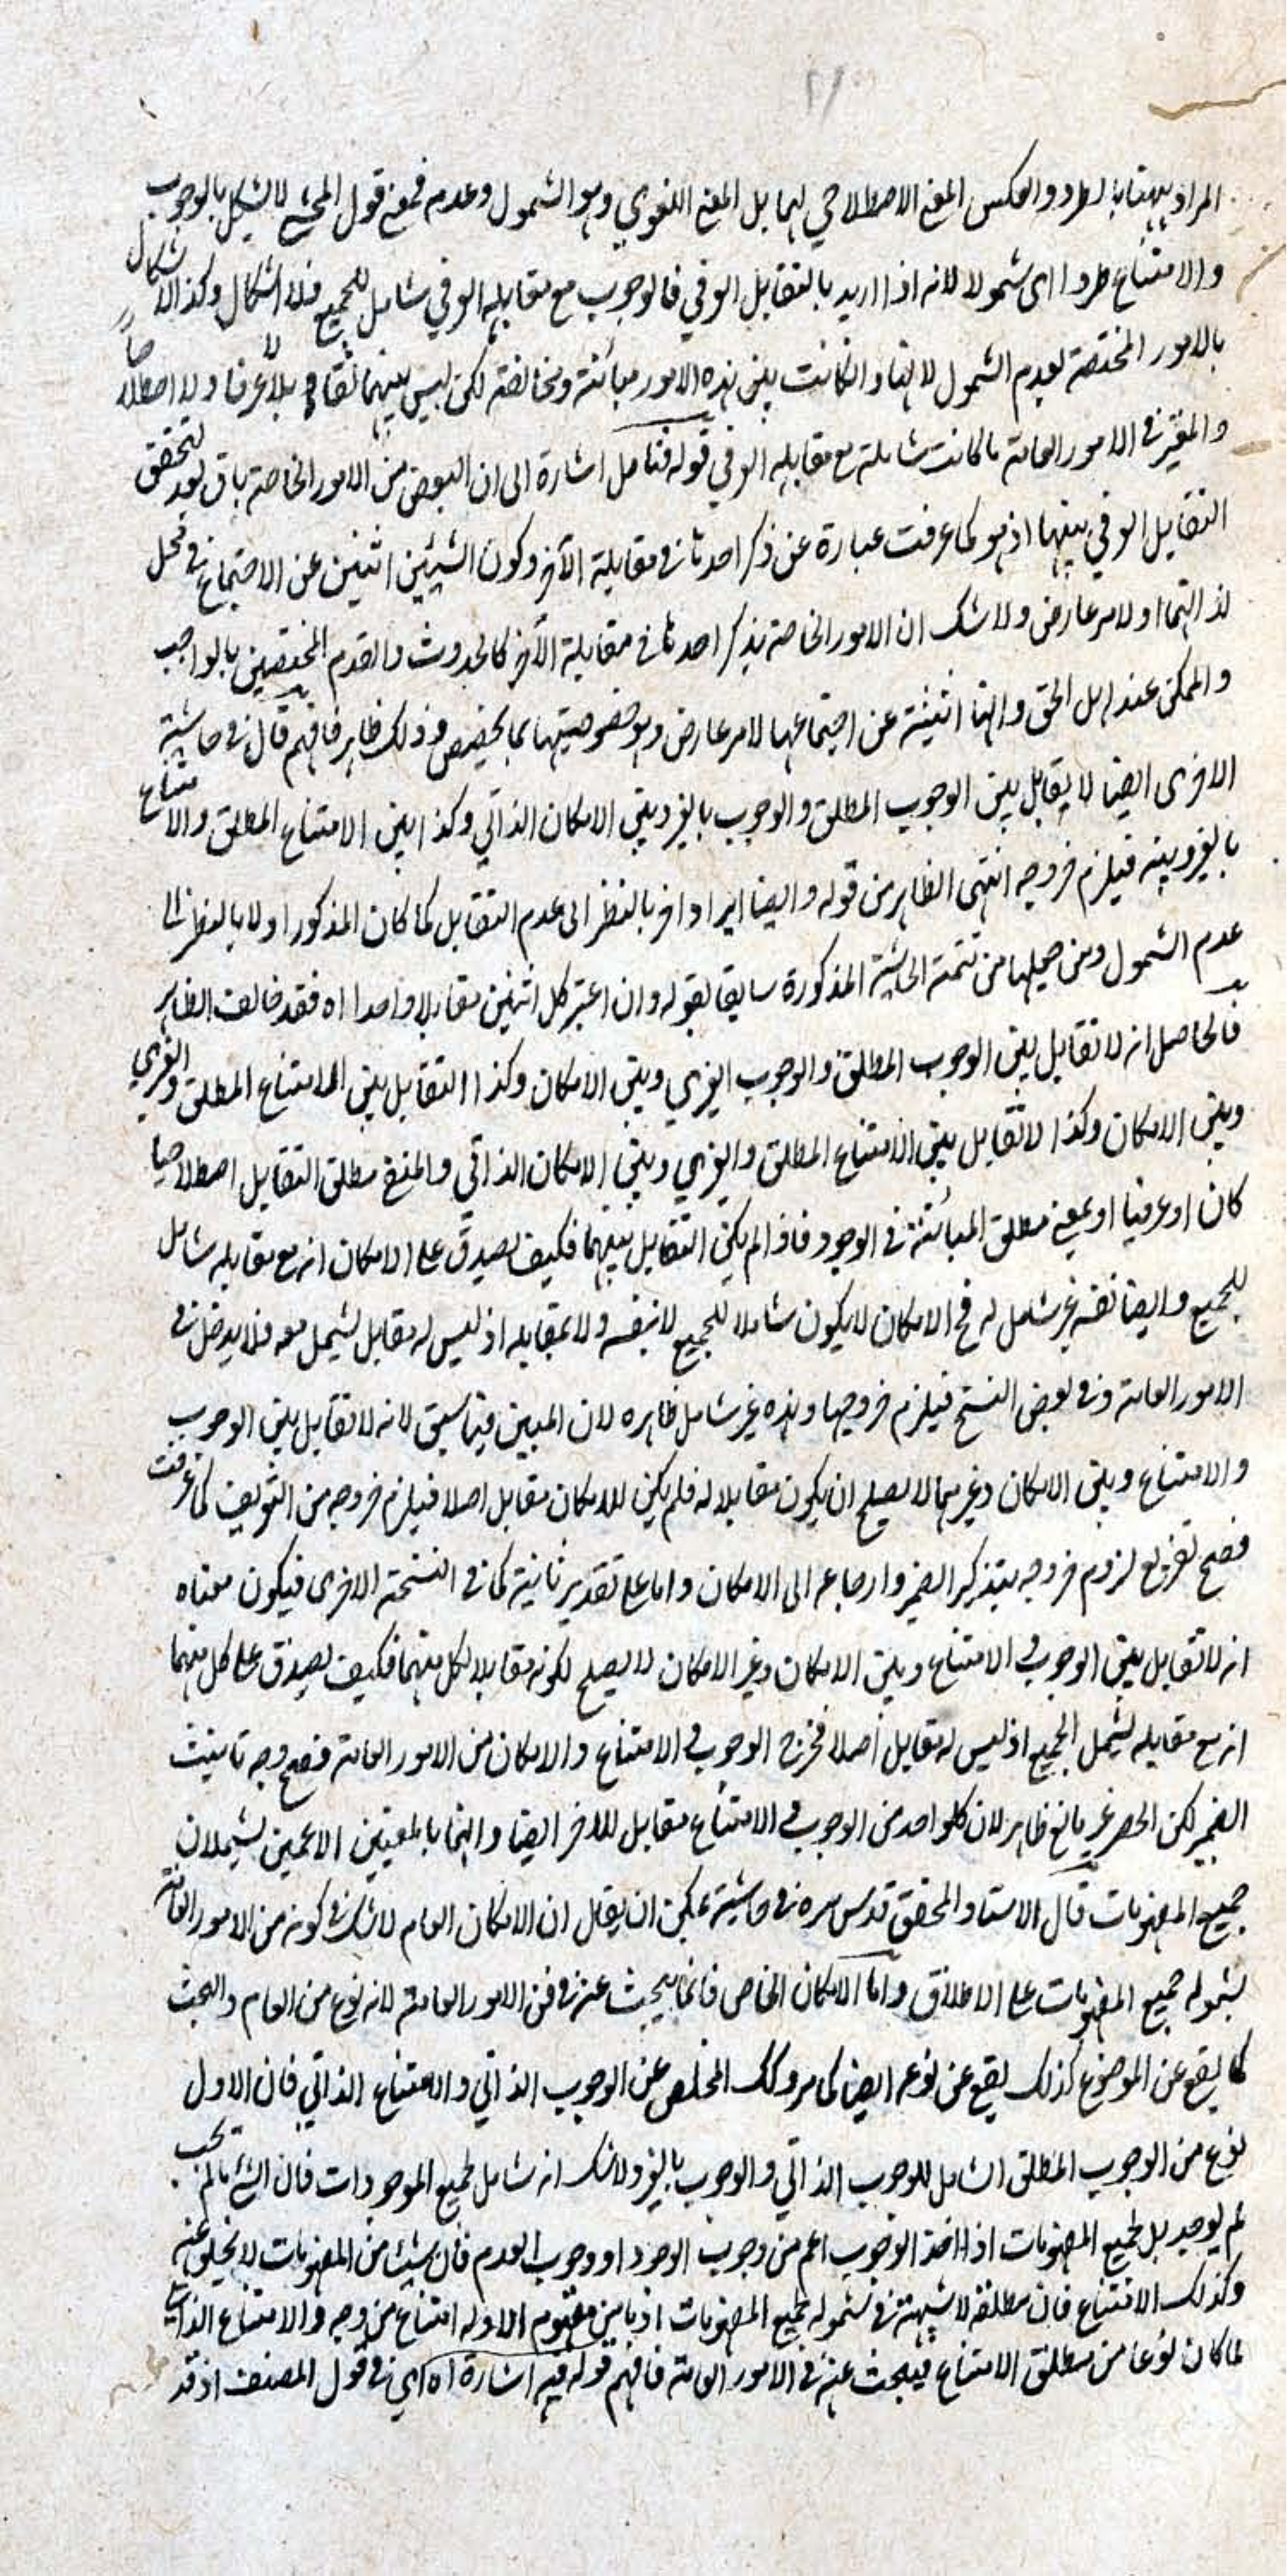 المراد ههنا بالطرد والعكس المعنى الاصطلاحي لهما بل المعنى اللغوي وهو الشمول وعدمه فمعنى قول المحشي لا يشكل بالوجوب
والامتناع طردا اى شمولا لانه اذا اريد بالتقابل العرفي فالوجوب مع مقابله العرفي شامل للجميع فلا اشكال وكذا لا اشكال
بالامور المختصة لعدم الشمول لانها وان كانت بين هذه الامور مباينة ومخالفة لكن ليس بينهما تقابلا لا عرفا ولا اصطلاحا
والمعتبر في الامور العامة ما كانت شاملة مع مقابله العرفي قوله فتامل اشارة الى ان البعض من الامور الخاصة باق بعد لتحقق
التقابل العرفي بينهما اذ هو كما عرفت عبارة عن ذكر احدهما في مقابلة الآخر وكون الشيئين اثنين عن الاجتماع في محل
لذاتهما او لامر عارض ولا شك ان الامور الخاصة يذكر احدهما في مقابلة الآخر كالحدوث والقدم المختصين بالواجب
والممكن عند اهل الحق وانها عن اجتماعهما لامر عارض وهو خصوصيتهما بما يخصص وذلك ظاهر فافهم قال في حاشية
الاخرى ايضا لا يقابل بين الوجوب المطلق والوجوب بالغير وبين الامكان الذاتي وكذا بين الامتناع المطلق والامتناع
بالغير وبينه فيلزم خروجه انتهى الظاهر من قوله وايضا ايراد آخر بالنظر الى عدم التقابل كما كان المذكور اولا بالنظر الى
عدم الشمول ومن جعلها من تتمة الحاشية المذكورة سابقا بقوله وان اعتبر كل اثنين مقابلا واحدا اه فقد خالف الظاهر
فالحاصل انه لا تقابل بين الوجوب المطلق والوجوب الغيري وبين الامكان وكذا التقابل بين الامتناع المطلق والغيري
وبين الامكان وكذا لا تقابل بين الامتناع المطلق والغيري وبين الامكان الذاتي والمنفي مطلق التقابل اصطلاحيا
كان او عرفيا او بمعنى مطلق المباينة في الوجود فاذا لم يكن التقابل بينهما فكيف يصدق على الامكان انه مع مقابله شامل
للجميع وايضا نفسه غير شامل له فح الامكان لا يكون شاملا للجميع لا بنفسه ولا بمقابله اذ ليس له مقابل يشمل معه فلا يدخل في
الامور العامة وفي بعض النسخ فيلزم خروجها وهذه غير شامل ظاهره لان المبين فيما سبق لانه لا تقابل بين الوجوب
والامتناع وبين الامكان وغيرهما لا يصلح ان يكون مقابلا له فلم يكن للامكان مقابل اصلا فيلزم خروجه من التعريف كما عرفت
فصح تفريع لزوم خروجه بتذكير الضمير وارجاعه الى الامكان واما على تقدير تانيثه كما في النسخة الاخرى فيكون معناه
انه لا تقابل بين الوجوب والامتناع وبين الامكان وغير الامكان لا يصلح لكونه مقابلا لكل منهما فكيف يصدق على كل منهما
انه مع مقابله يشمل الجميع اذ ليس له مقابل اصلا فخرج الوجوب والامتناع والامكان من الامور العامة فصح وجه تانيث
الضمير لكن الحصر غير مانع ظاهر لان كل واحد من الوجوب والامتناع مقابل للآخر ايضا وانهما بالمعنيين الاعمين يشملان
جميع المفهومات قال الاستاد المحقق قدس سره في حاشيته يمكن ان يقال ان الامكان العام لا شك في كونه من الامور العامة
لشموله جميع المفهومات على الاطلاق واما الامكان الخاص فانما يبحث عنه في فن الامور العامة لانه نوع من العام والبحث
كما يقع عن الموضوع كذلك يقع عن نوعه ايضا كما مر وكذلك المخلص عن الوجوب الذاتي والامتناع الذاتي فان الاول
نوع من الوجوب المطلق الشامل للوجوب الذاتي والوجوب بالغير ولا شك انه شامل لجميع الموجودات فان الشئ ما لم يجب
لم يوجد بل لجميع المفهومات اذا اخذ الوجوب اعم من وجوب الوجود او وجوب العدم فان شيئا من المفهومات لا يخلو عنه
وكذلك الامتناع فان مطلقه لا شبهة في شموله لجميع المفهومات اذ ما من مفهوم الا وله امتناع من وجه والامتناع الذاتي
لما كان نوعا من مطلق الامتناع فيبحث عنه في الامور العامة فافهم قوله فيه اشارة اه اي في قول المصنف اذ قد